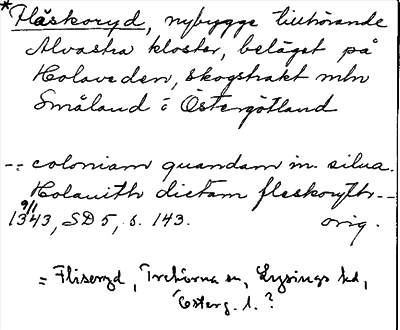 *Fläskoryd, nybygge tillhörande
Alvastra kloster, beläget på
Holaveden, skogstrakt mln
Småland i Östergötland
-- coloniam quandam in silua
Holauith dictam fleskorythr --
9/11
1343, SD 5, s. 143. orig.
= Fliseryd, Trehörna sn, Lysings hd,
Österg. l. ?